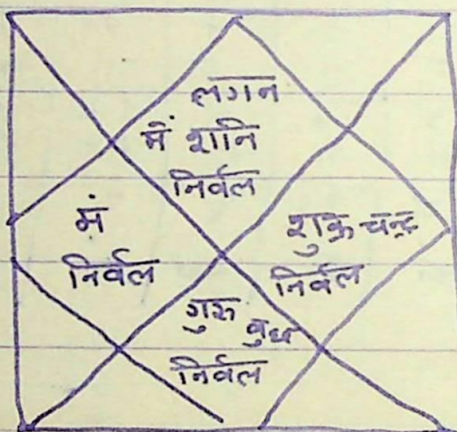 लगन
में शनि
निर्वल
मं
निर्वल
शुक्र चन्द्र
निर्वल
गुरु वुध
निर्वल